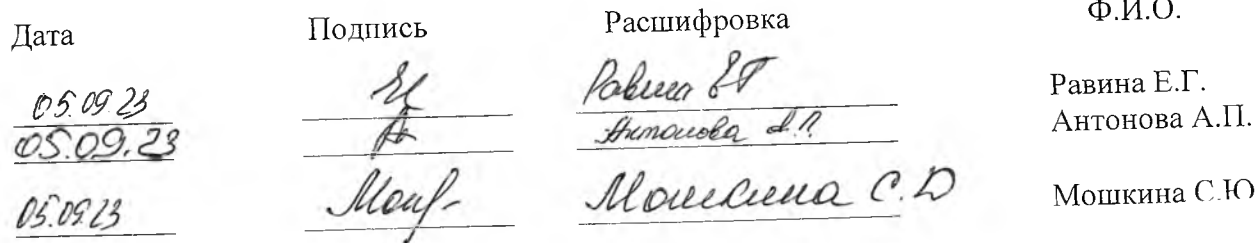 Дата Подпись Расшифровка Ф.И.О.
05.09.23 Равина ЕГ Равина Е.Г.
05.09.23 Антонова А.П. Антонова А.П.
05.09.23 Мошкина С.Ю Мошкина С.Ю